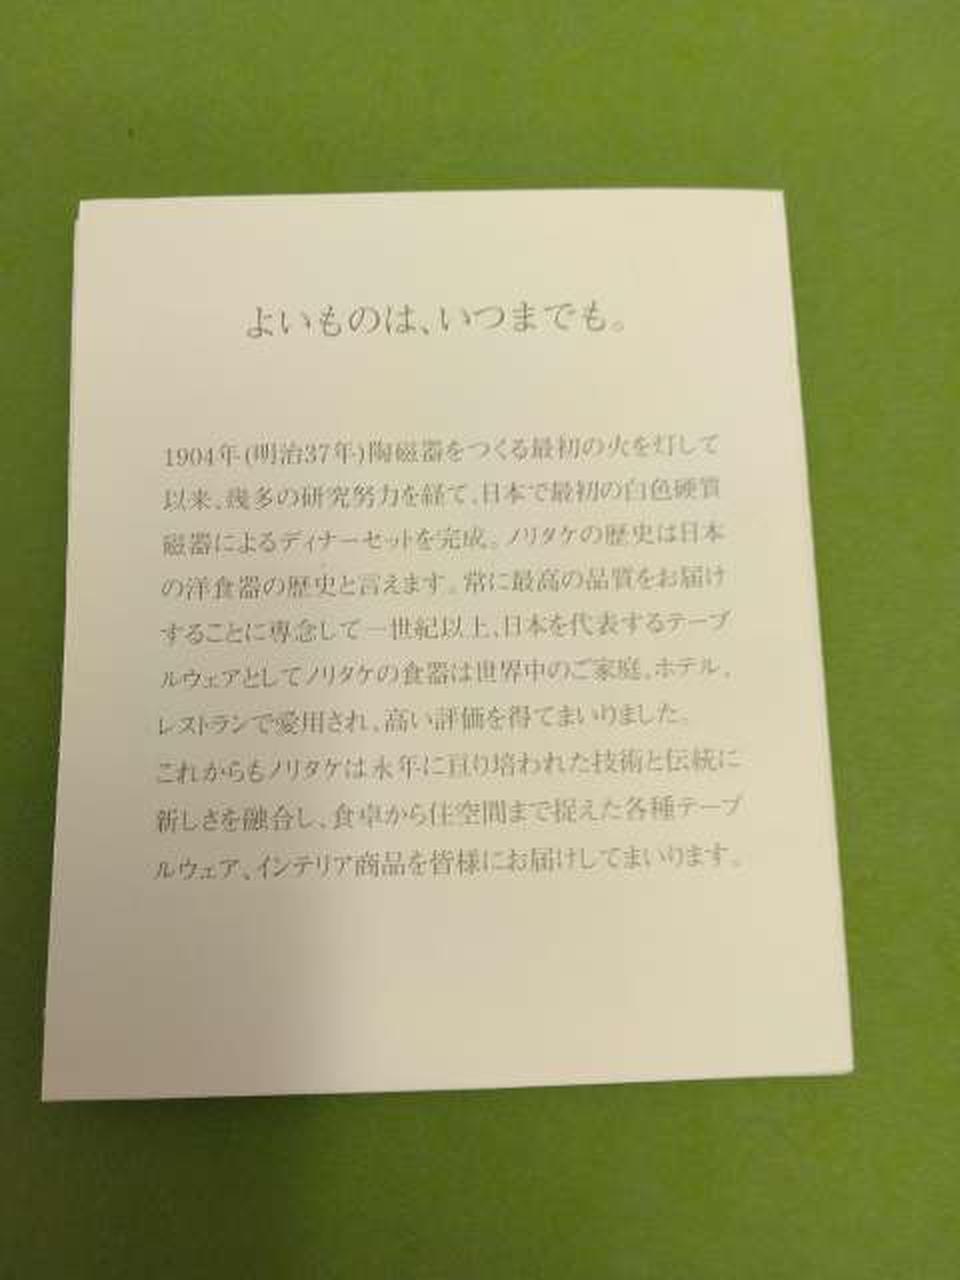 よいものは、いつまでも。
1904年(明治37年)陶磁器をつくる最初の火を灯して
以来、幾多の研究努力を経て、日本で最初の白色硬質
磁器によるディナーセットを完成。ノリタケの歴史は日本
の洋食器の歴史と言えます。常に最高の品質をお届け
することに専念して一世紀以上、日本を代表するテーブ
ルウェアとしてノリタケの食器は世界中のご家庭、ホテル、
レストランで愛用され、高い評価を得てまいりました。
これからもノリタケは永年に亘り培われた技術と伝統に
新しさを融合し、食卓から住空間まで捉えた各種テーブ
ルウェア、インテリア商品を皆様にお届けしてまいります。